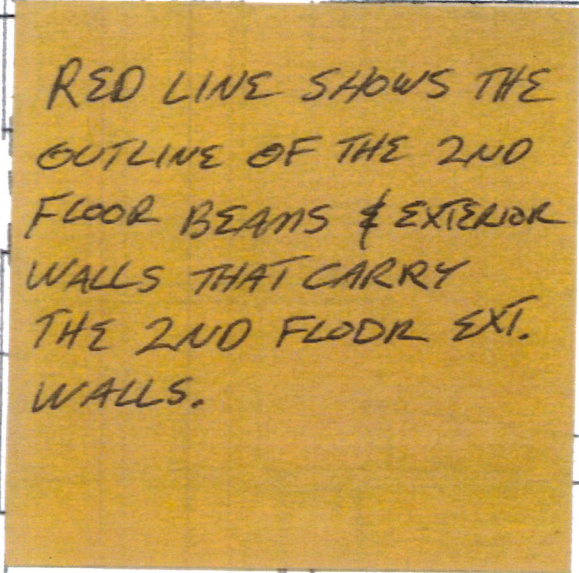 RED LINE SHOWS THE
OUTLINE OF THE 2ND
FLOOR BEAMS & EXTERIOR
WALLS THAT CARRY
THE 2ND FLOOR EXT.
WALLS.